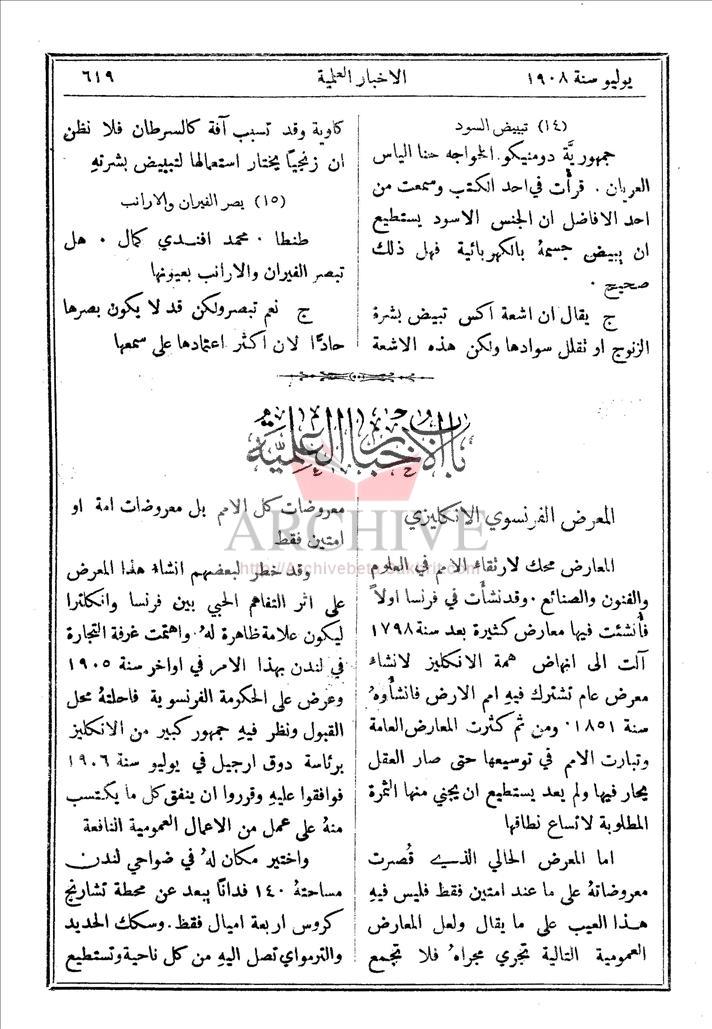 يوليو سنة ١٩٠٨
الاخبار العلمية
٦١٩
(١٤) تبييض السود
جمهوريَّة دومنيكو. الخواجه حنا الياس
العريان. قرأت في احد الكتب وسمعت من
احد الافاضل ان الجنس الاسود يستطيع
ان يبيض جسمهُ بالكهربائية فهل ذلك
صحيح.
ج يقال ان اشعة اكس تبيض بشرة
الزنوج او تقلل سوادها ولكن هذه الاشعة
كاوية وقد تسبب آفة كالسرطان فلا نظن
ان زنجيًا يختار استعمالها لتبييض بشرتهِ
(١٥) بصر الفيران والارانب
طنطا. محمد افندي كمال. هل
تبصر الفيران والارانب بعيونها
ج نعم تبصر ولكن قد لا يكون بصرها
حادًّا لان اكثر اعتمادها على سمعها
باب الاخبار العلمية
المعرض الفرنسوي الانكليزي
المعارض محك لارتقاء الامم في العلوم
والفنون والصنائع. وقد نشأت في فرنسا اولاً
فأُنشئت فيها معارض كثيرة بعد سنة ١٧٩٨
آلت الى انهاض همة الانكليز لانشاء
معرض عام تشترك فيهِ امم الارض فانشأُوهُ
سنة ١٨٥١. ومن ثم كثرت المعارض العامة
وتبارت الامم في توسيعها حتى صار العقل
يحار فيها ولم يعد يستطيع ان يجني منها الثمرة
المطلوبة لاتساع نطاقها
اما المعرض الحالي الذي قُصرت
معروضاتهُ على ما عند امتين فقط فليس فيهِ
هذا العيب على ما يقال ولعل المعارض
العمومية التالية تجري مجراهُ فلا تجمع
معروضات كل الامم بل معروضات امة او
امتين فقط
وقد خطر لبعضهم انشاء هذا المعرض
على اثر التفاهم الحبي بين فرنسا وانكلترا
ليكون علامة ظاهرة لهُ واهتمت غرفة التجارة
في لندن بهذا الامر في اواخر سنة ١٩٠٥
وعرض على الحكومة الفرنسوية فاحلتهُ محل
القبول ونظر فيهِ جمهور كبير من الانكليز
برئاسة دوق ارجيل في يوليو سنة ١٩٠٦
فوافقوا عليهِ وقرروا ان ينفق كل ما يكتسب
منهُ على عمل من الاعمال العمومية النافعة
واختير مكان لهُ في ضواحي لندن
مساحتهُ ١٤٠ فدانًا يبعد عن محطة تشارنج
كروس اربعة اميال فقط. وسكك الحديد
والترمواي تصل اليهِ من كل ناحية وتستطيع
ARCHIVE